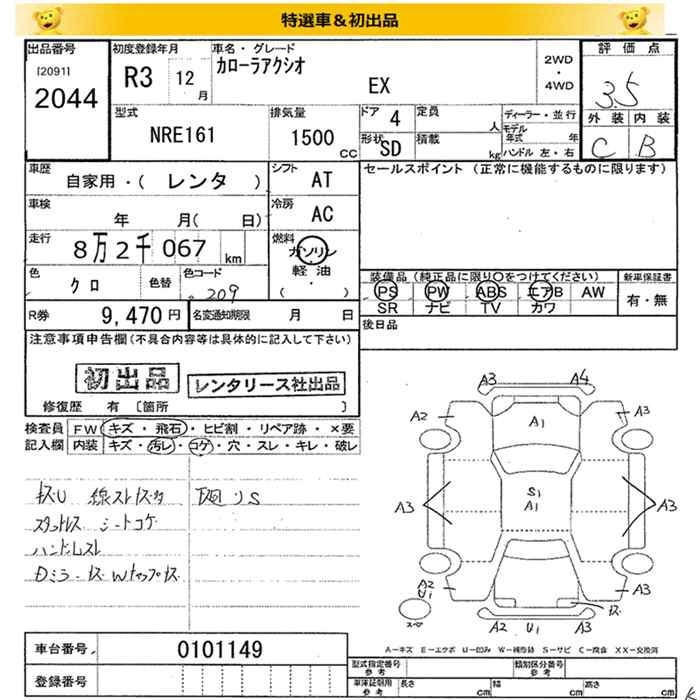 特選車＆初出品
出品番号 初度登録年月 車名・グレード 評価点
[2091] R3 12月 カローラアクシオ 2WD・4WD 3.5
2044 EX 外装 内装
型式 排気量 ドア 4 定員 人 ディーラー・並行 C B
NRE161 1500 CC 形状 SD 積載 kg モデル年式 年
ハンドル 左・右
車歴 自家用・（レンタ） シフト AT セールスポイント（正常に機能するものに限ります）
車検 年 月（ 日） 冷房 AC
走行 8万2千067 km 燃料 ガソリン
軽油
（ ・ ）
色 クロ 色替 色コード 209 装備品（純正品に限り○をつけてください） 新車保証書
PS PW ABS エアB AW 有・無
R券 9,470円 名変通知期限 月 日 SR ナビ TV カワ
注意事項申告欄（不具合内容等は具体的に記入して下さい） 後日品
初出品 レンタリース社出品
修復歴 有 [箇所 ]
検査員 FW キズ・飛石・ヒビ割・リペア跡・×要
記入欄 内装 キズ・汚レ・コゲ・穴・スレ・キレ・破レ
A3 A4
A2 A1 A3
A3 S1 A1 A3
A2 U1 A3
A2 U1 A3
シートコゲ
ハンドルスレ
車台番号 0101149
登録番号
A-キズ E-エクボ U-凹み W-補修跡 S-サビ C-腐食 XX-交換済
型式指定番号 参考 類別区分番号 参考
車庫証明用 参考 長さ cm 幅 cm 高さ cm